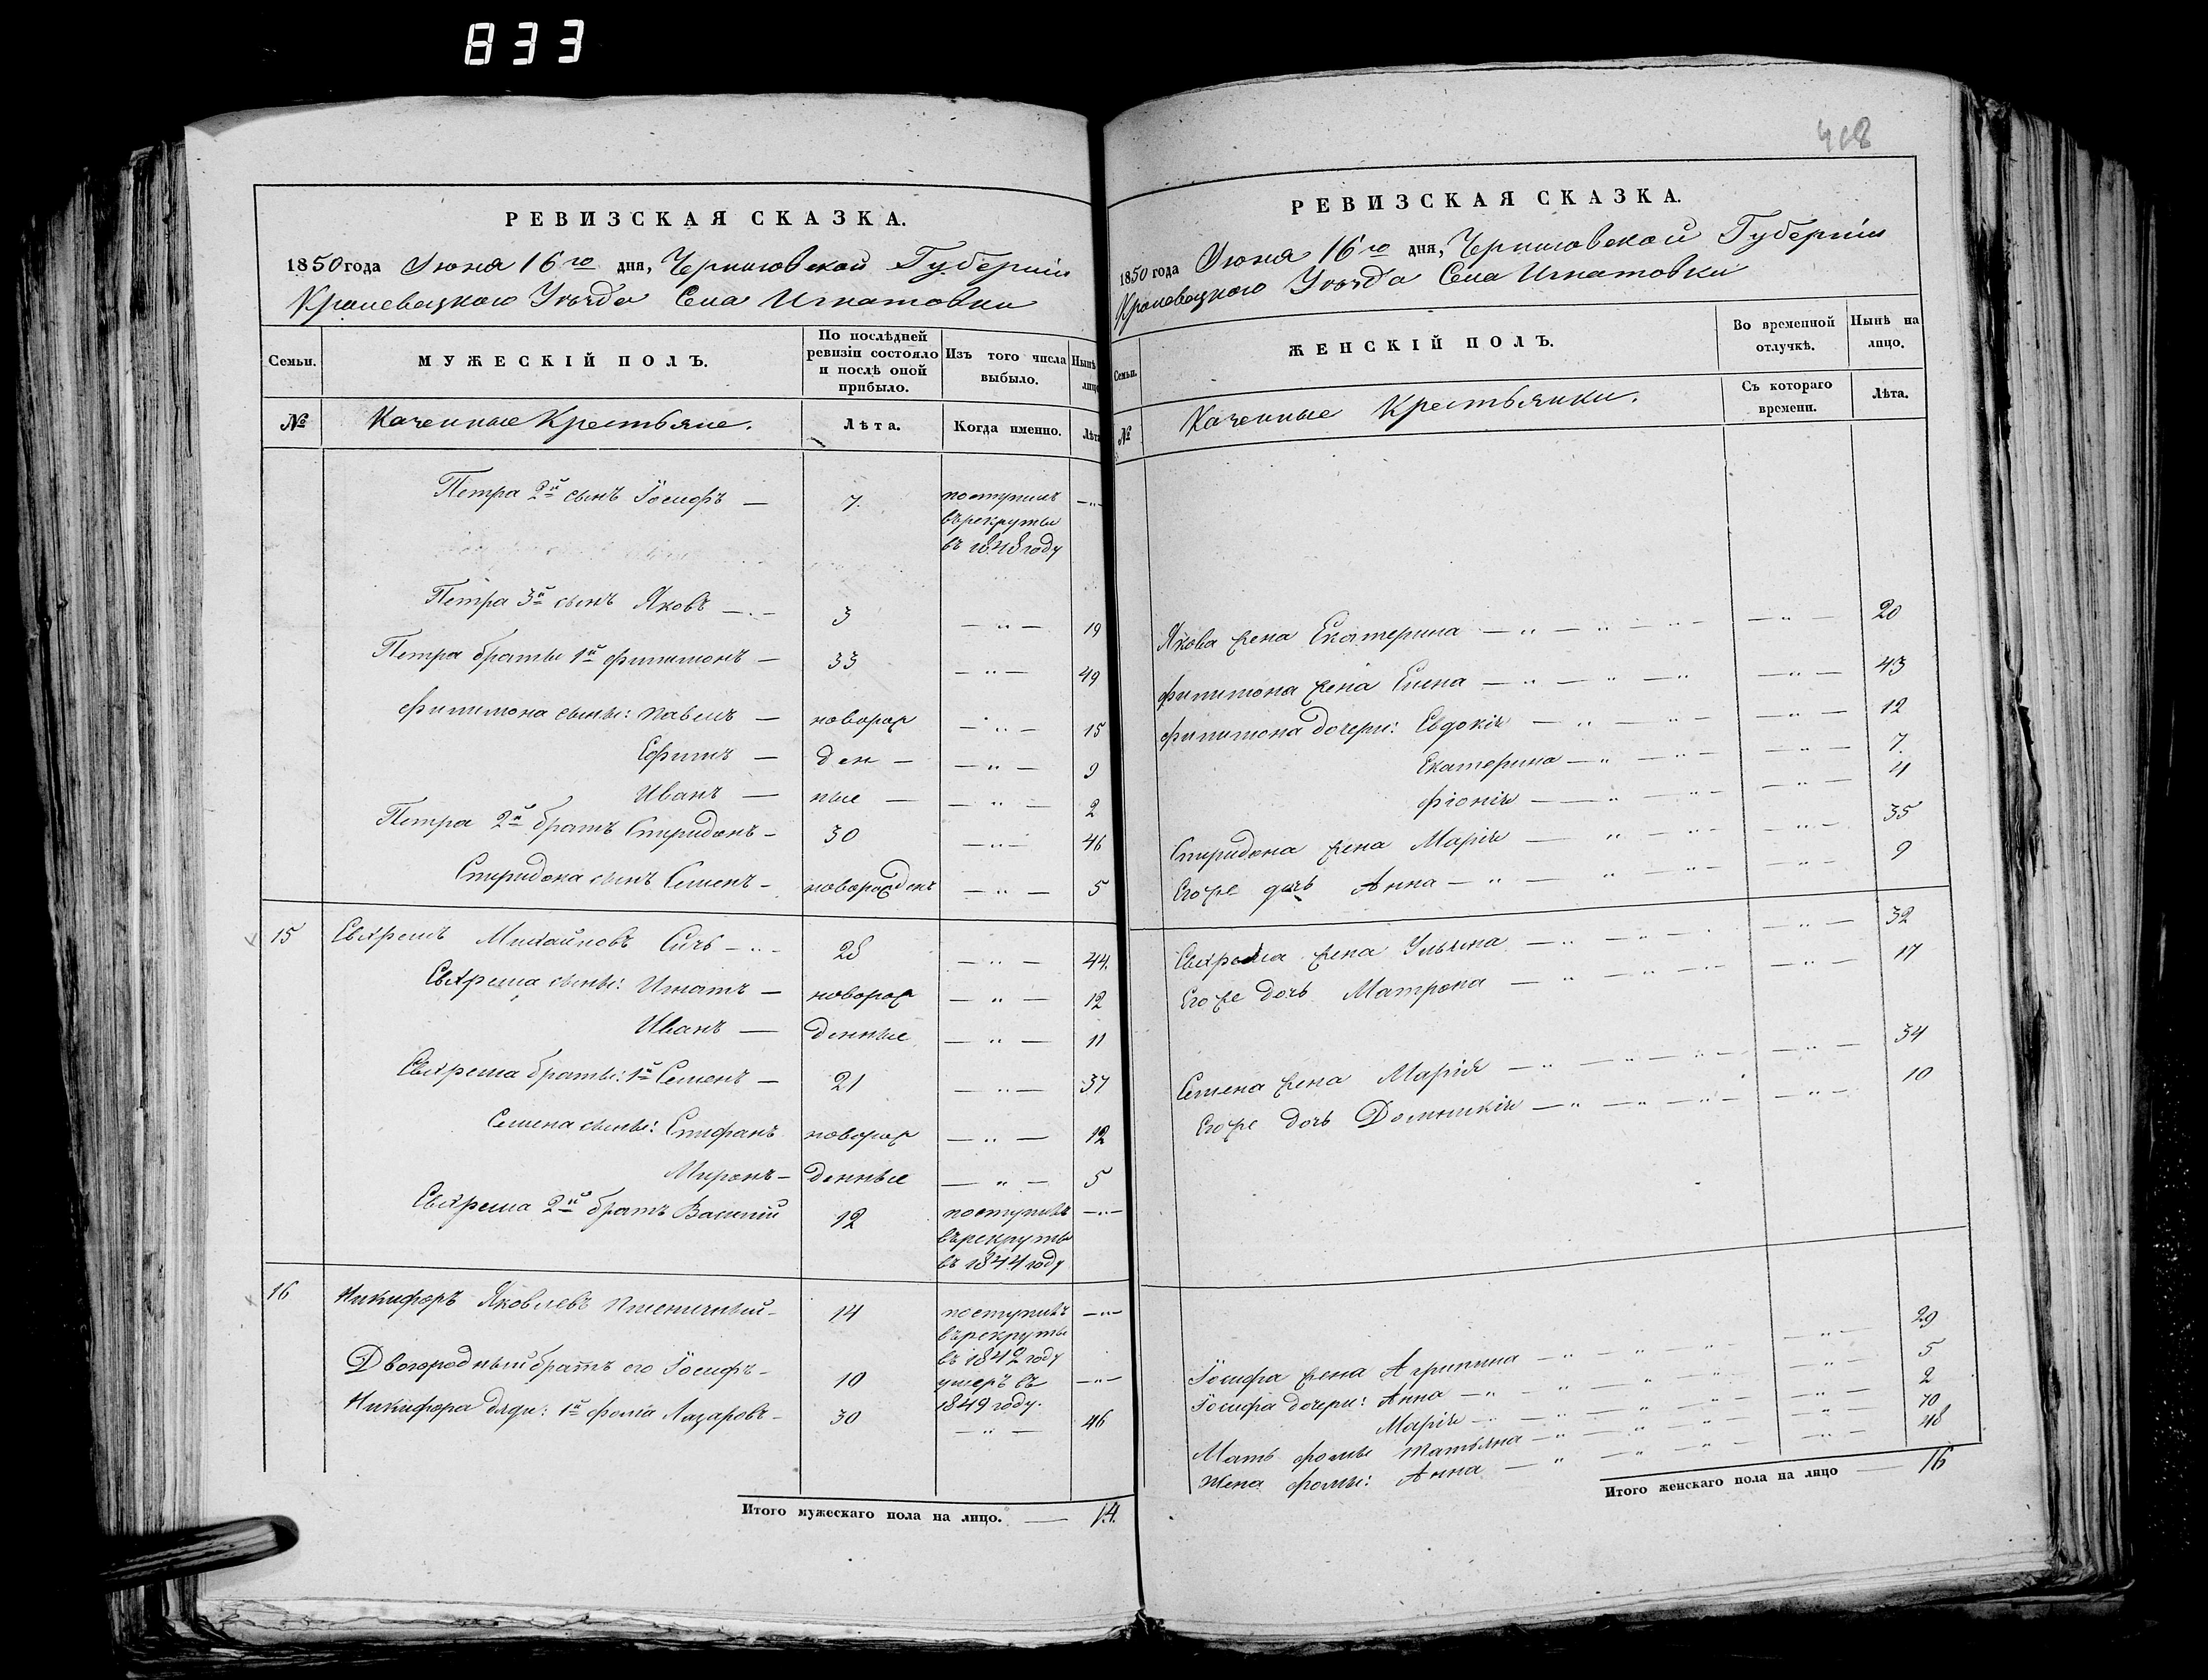 833
408
РЕВИЗСКАЯ СКАЗКА.
1850 года Июня 16го дня, Черниговской Губерніи
Кролевецкаго Уѣзда Села Игнатовки
Семьи. МУЖЕСКІЙ ПОЛЪ. По послѣдней ревизіи состояло и послѣ оной прибыло. Изъ того числа выбыло. Нынѣ лицо
№ Казенные Крестьяне. Лѣта. Когда именно. Лѣта
Петра 2й сынъ Іосифъ — 7. поступилъ —"—
въ рекруты
въ 1848 году
Петра 3й сынъ Яковъ — 3 —"— 19
Петра братья 1й Филимонъ — 33 —"— 49
Филимона сыны: Павелъ — новорож —"— 15
Ефимъ — ден — —"— 9
Иванъ — ные — —"— 2
Петра 2й братъ Спиридонъ — 30 —"— 46
Спиридона сынъ Семенъ — новорожденъ —"— 5
15 Михайловъ Сичь — 28 —"— 44.
сыны: Игнатъ — новорож —"— 12
Иванъ — денные —"— 11
братья: 1й Семенъ — 21 —"— 37
Семена сыны: Епифанъ новорож —"— 12
Миронъ — денные —"— 5
2й братъ Василий 12 поступилъ —"—
въ рекруты
въ 1844 году
16 Никифоръ Яковлевъ Пшеничный — 14 поступилъ —"—
въ рекруты
въ 1842 году
Двоюродный братъ его Іосифъ — 10 умеръ въ —"—
1849 году.
Никифора дяди: 1й Фома Лазаровъ — 30 —"— 46
Итого мужескаго пола на лицо. — 14.
РЕВИЗСКАЯ СКАЗКА.
1850 года Июня 16го дня, Черниговской Губерніи
Кролевецкаго Уѣзда Села Игнатовки
Семьи. ЖЕНСКІЙ ПОЛЪ. Во временной отлучкѣ. Нынѣ на лицо.
№ Казенные Крестьянки. Съ котораго времени. Лѣта.
Якова жена Екатерина —"— 20
Филимона жена Елена —"— 43
Филимона дочери: Евдокія —"— 12
Екатерина —"— 7.
—"— 4
Спиридона жена Марія —"— 35
Его же дочь Анна —"— 9
жена Ульяна —"— 32
Его же дочь Матрона —"— 17
Семена жена Марія —"— 34
Его же дочь Домникія —"— 10
Іосифа жена Агрипина —"— 29
Іосифа дочери: Анна —"— 5
Марія —"— 2
Мать Фомы Татьяна —"— 70
Жена Фомы: Анна —"— 48
Итого женскаго пола на лицо — 16